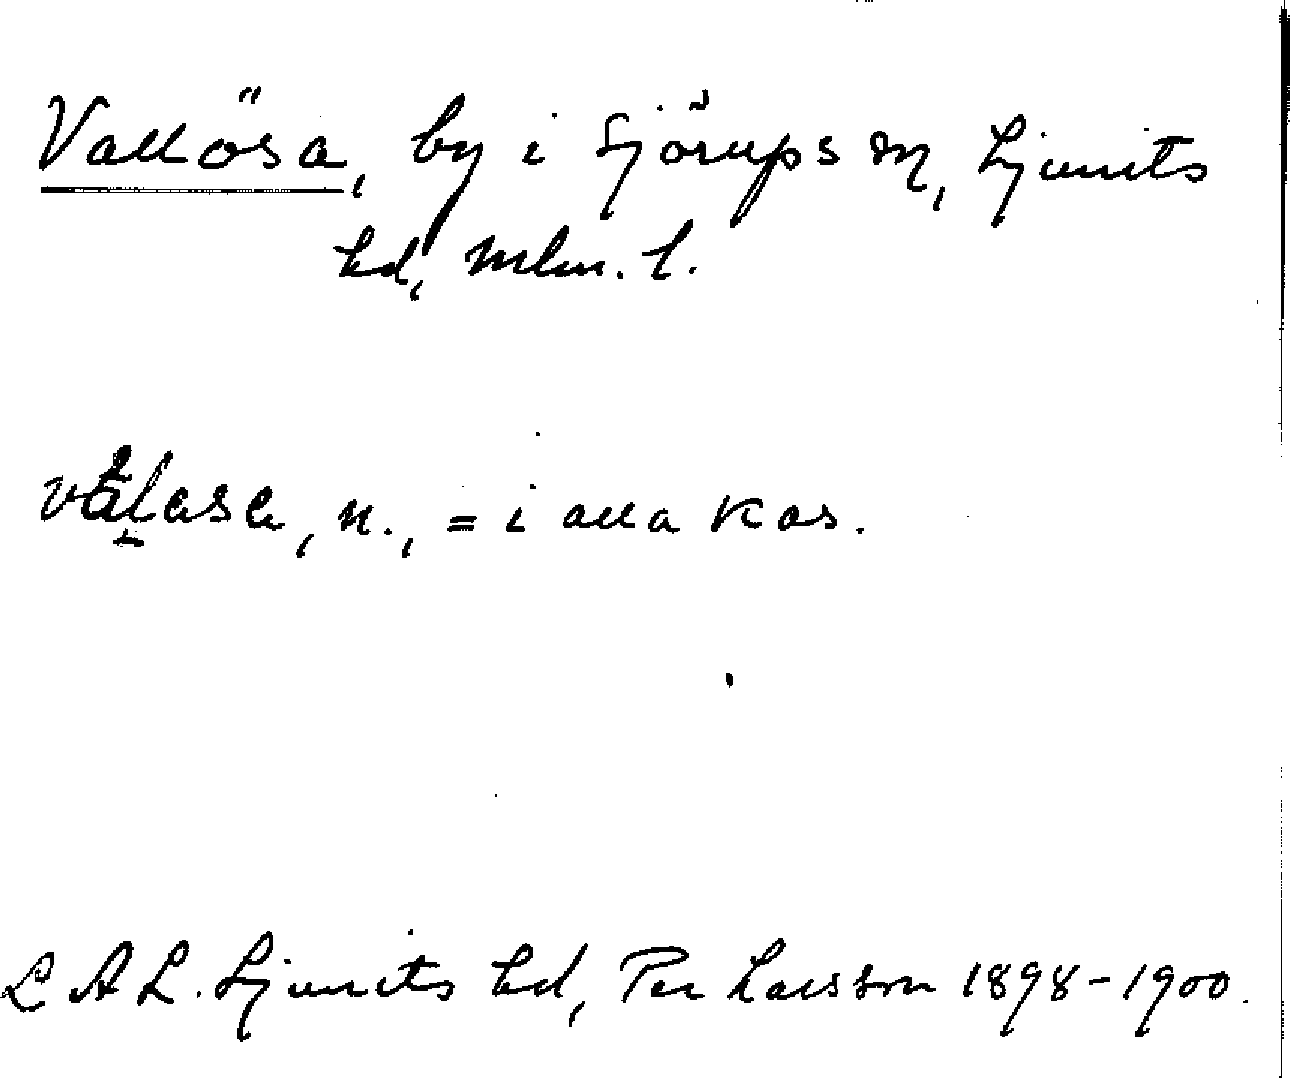 Vallösa, by i Sjörups sn, Ljunits
hd, Mlm. l.
n., = i alla kas.
LAL. Ljunits hd, Per Larsson 1898-1900.